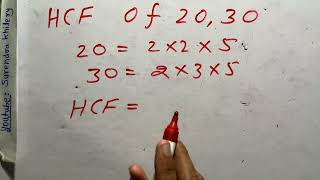 HCF of 20, 30
20 = 2×2×5
30 = 2×3×5
HCF =
YouTube: Surendra Khilery